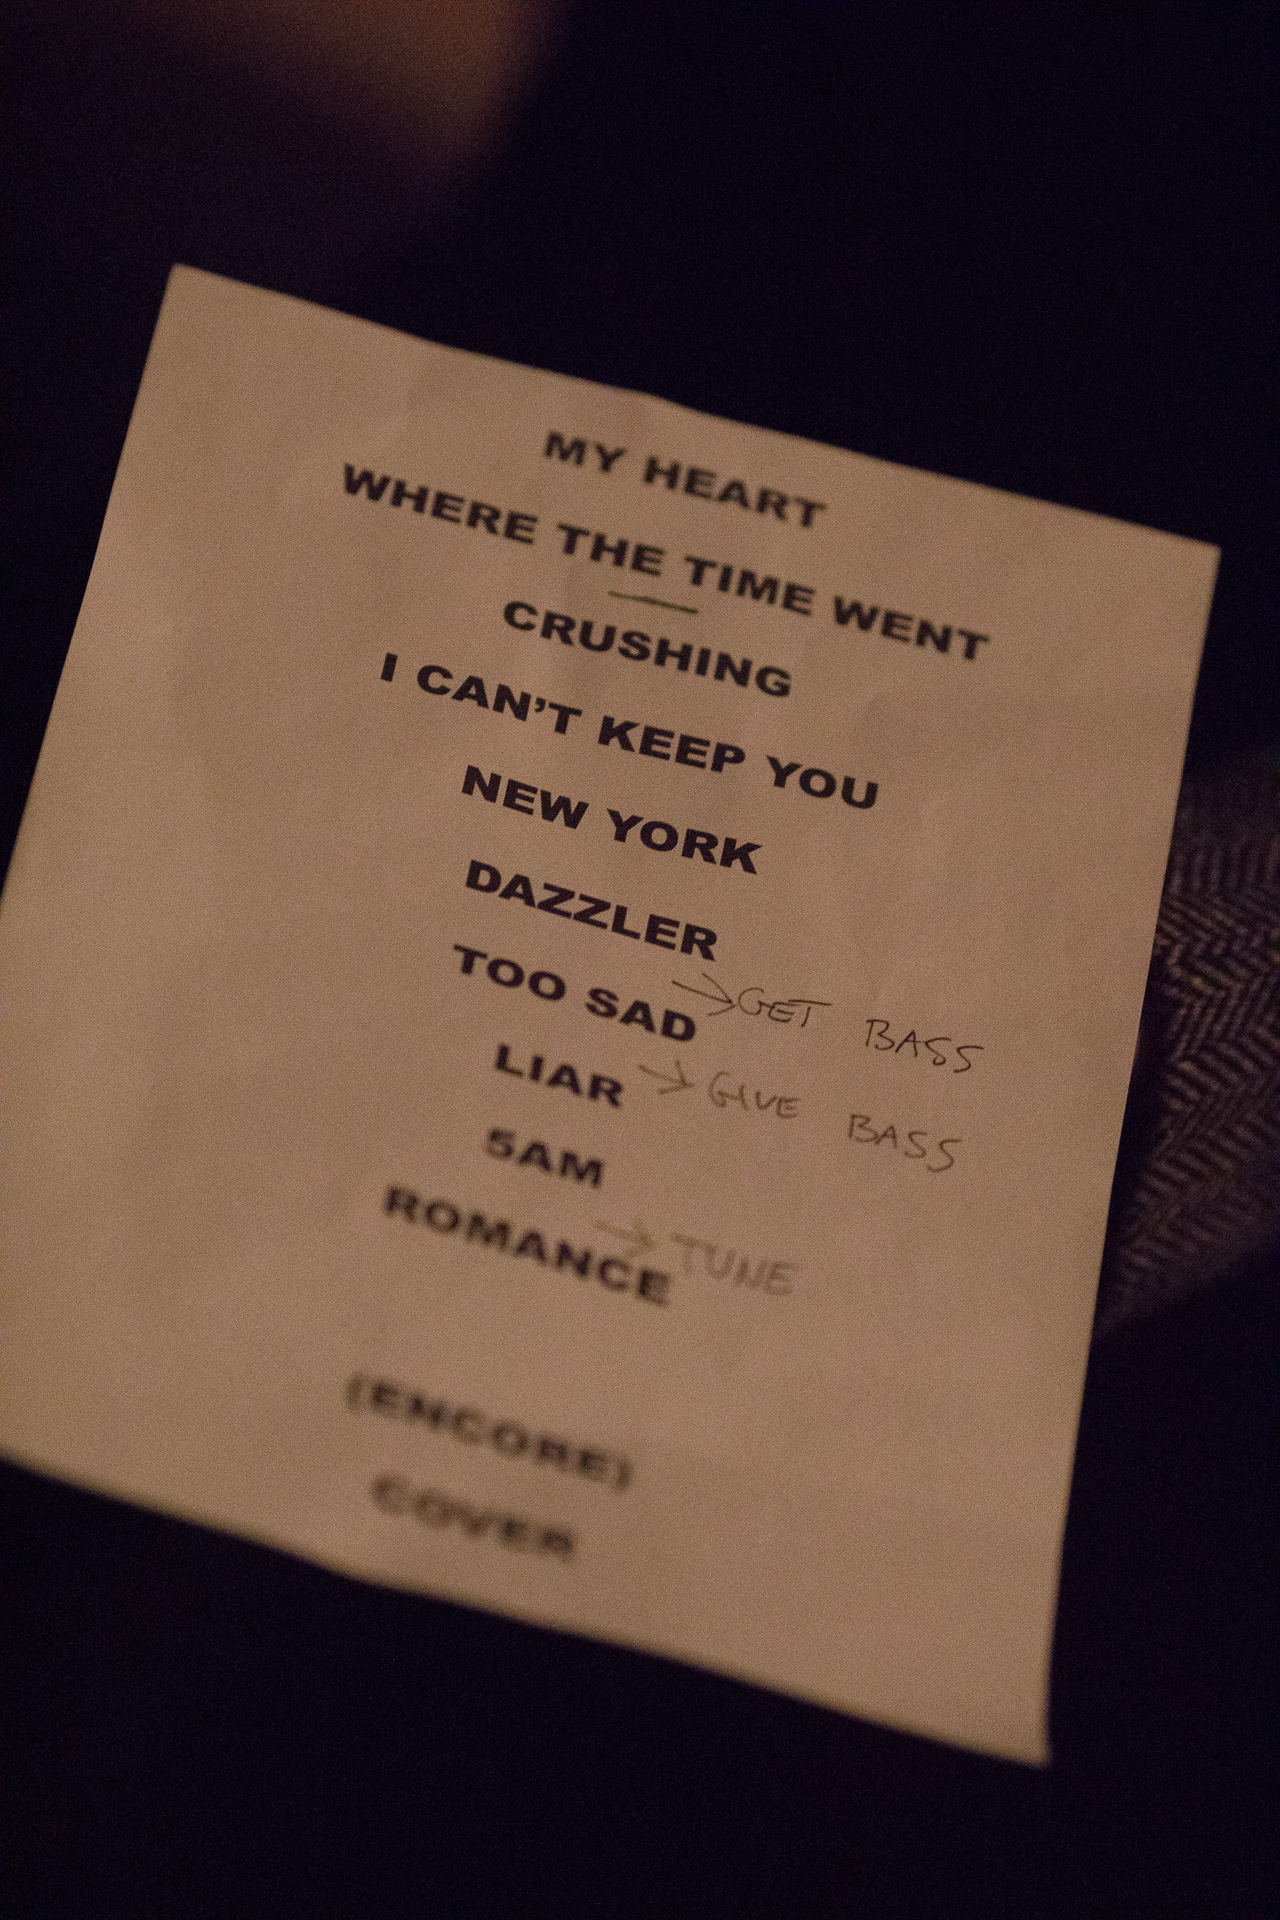 MY HEART
WHERE THE TIME WENT
CRUSHING
I CAN'T KEEP YOU
NEW YORK
DAZZLER
→ GET BASS
TOO SAD
→ GIVE BASS
LIAR
5AM
→ TUNE
ROMANCE
(ENCORE)
COVER